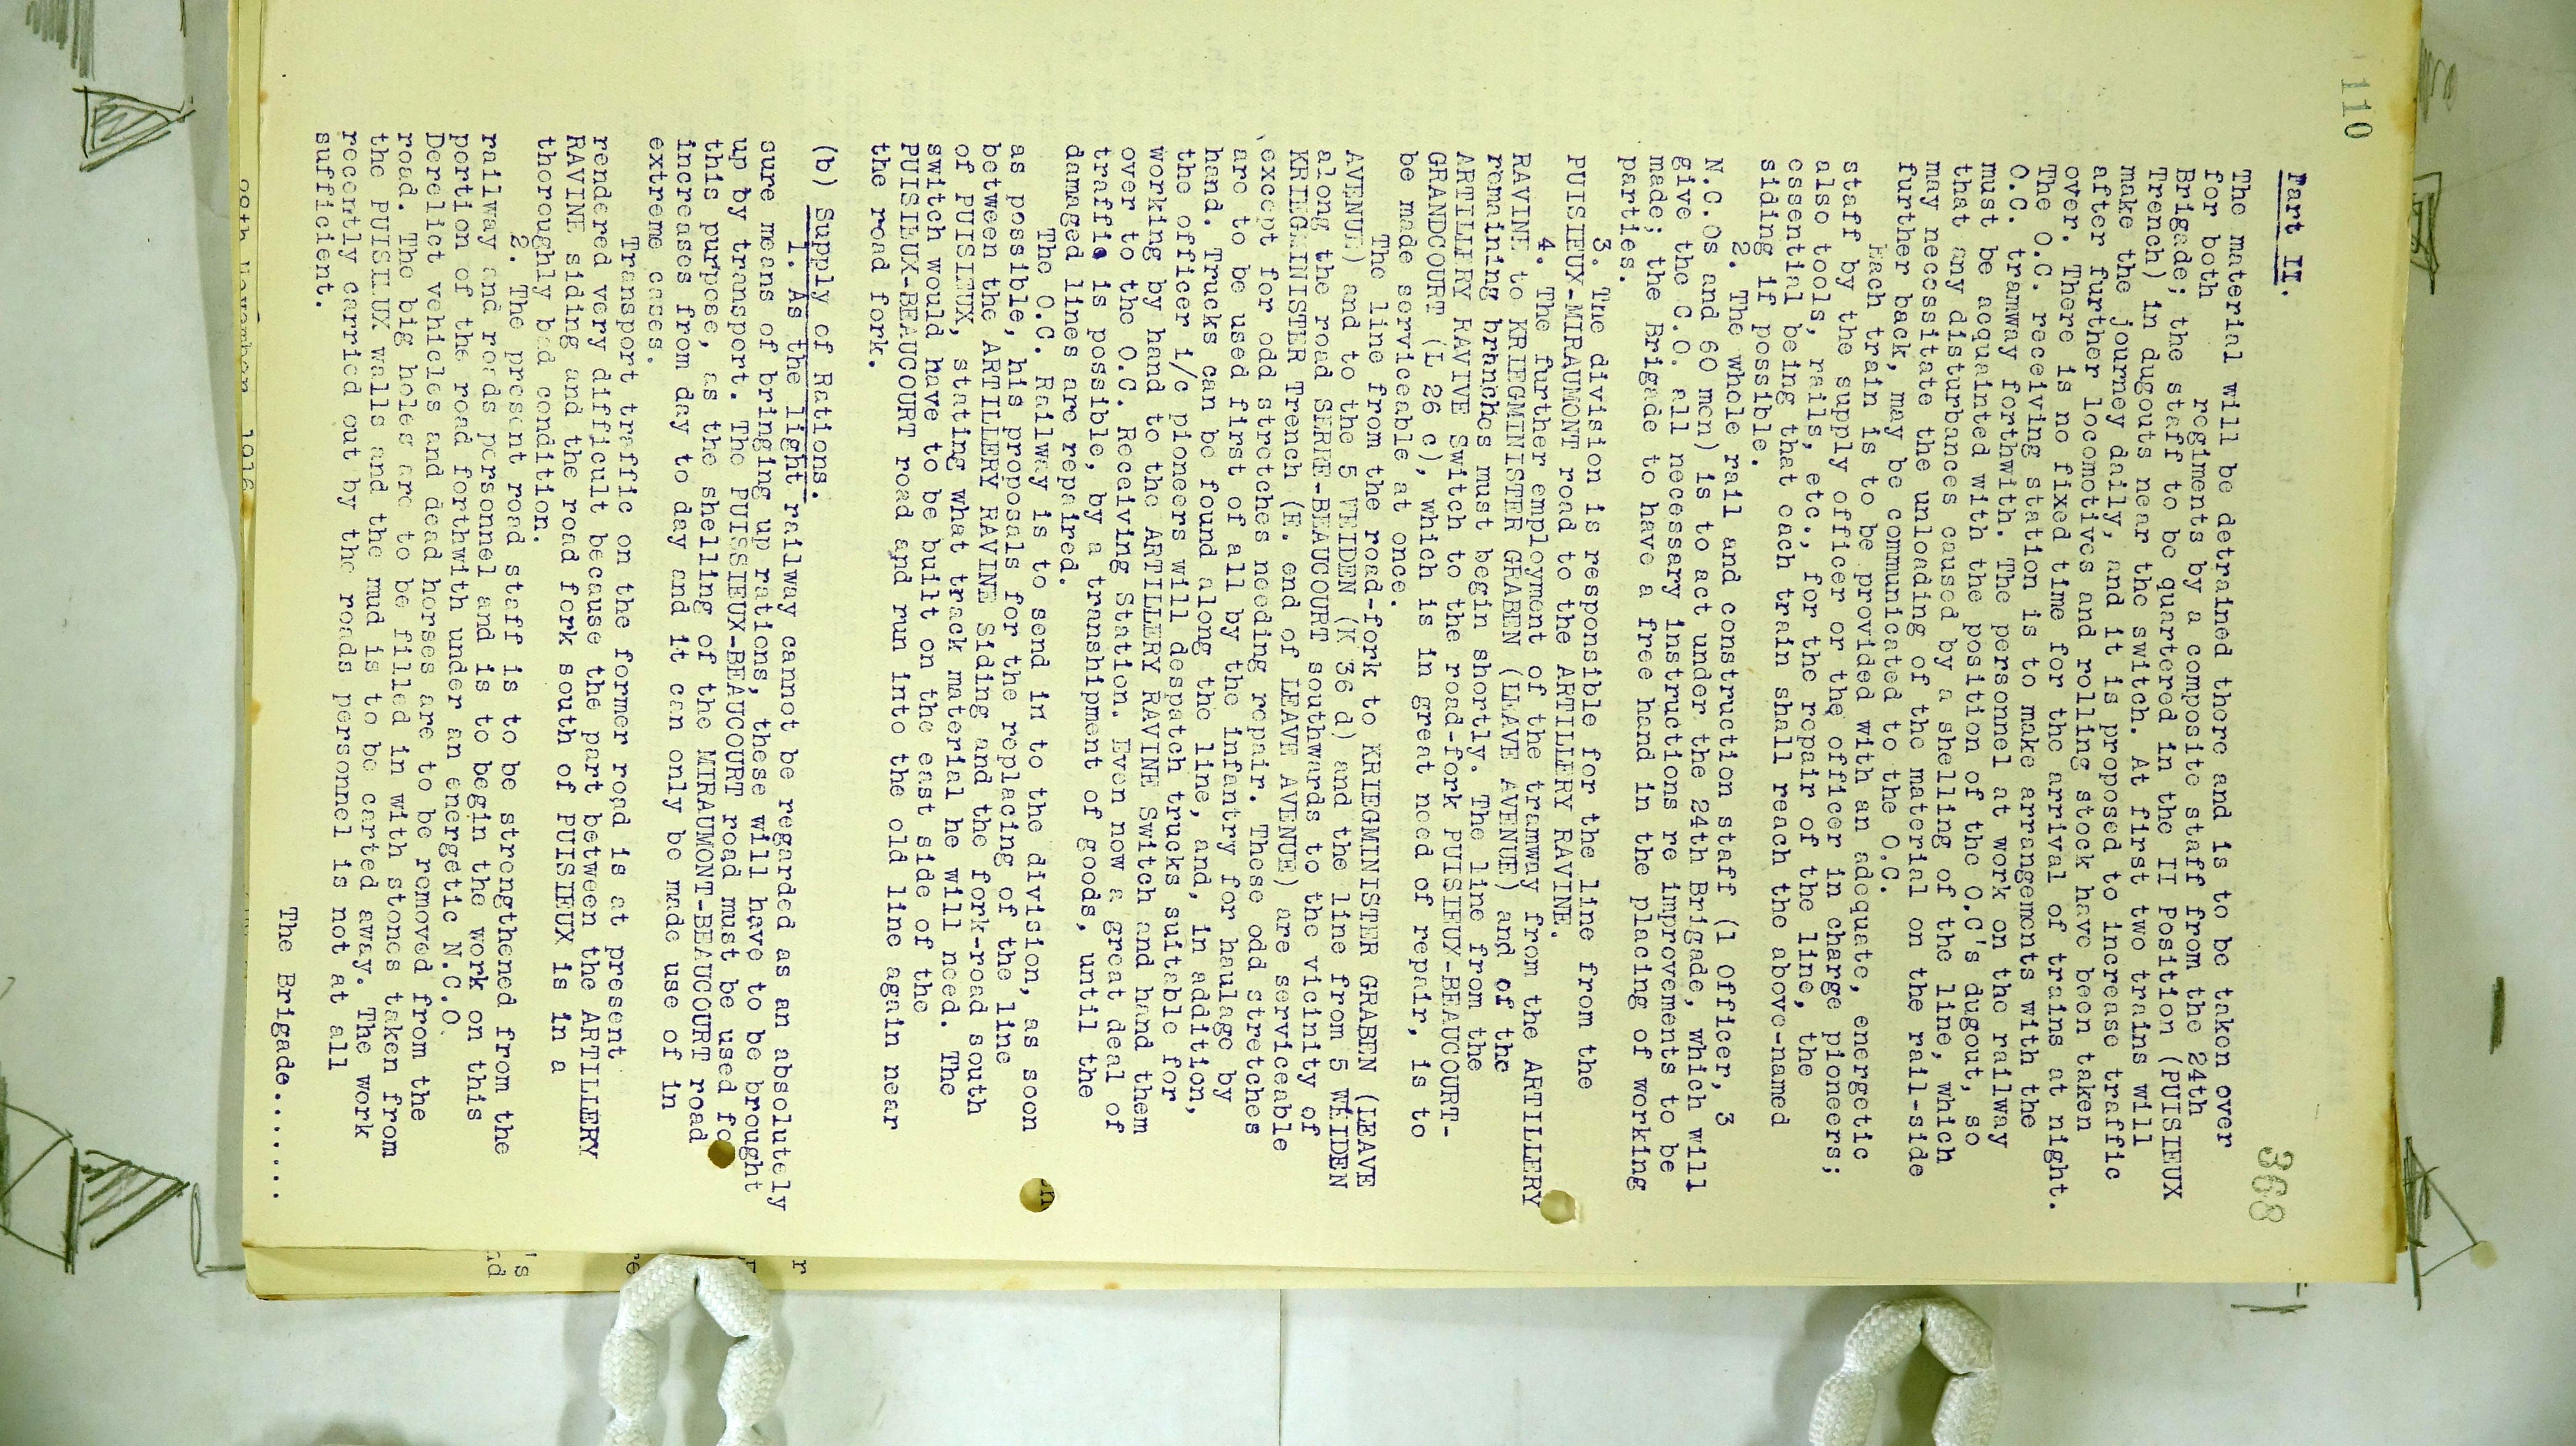 110
368
Part II.
The material will be detrained there and is to be taken over
for both regiments by a composite staff from the 24th
Brigade; the staff to be quartered in the II Position (PUISIEUX
Trench) in dugouts near the switch. At first two trains will
make the journey daily, and it is proposed to increase traffic
after further locomotives and rolling stock have been taken
over. There is no fixed time for the arrival of trains at night.
The O.C. receiving station is to make arrangements with the
O.C. tramway forthwith. The personnel at work on the railway
must be acquainted with the position of the O.C's dugout, so
that any disturbances caused by a shelling of the line, which
may necessitate the unloading of the material on the rail-side
further back, may be communicated to the O.C.
Each train is to be provided with an adequate, energetic
staff by the supply officer or the officer in charge pioneers;
also tools, rails, etc., for the repair of the line, the
essential being that each train shall reach the above-named
siding if possible.
2. The whole rail and construction staff (1 officer, 3
N.C.Os and 60 men) is to act under the 24th Brigade, which will
give the C.O. all necessary instructions re improvements to be
made; the Brigade to have a free hand in the placing of working
parties.
3. The division is responsible for the line from the
PUISIEUX-MIRAUMONT road to the ARTILLERY RAVINE.
4. The further employment of the tramway from the ARTILLERY
RAVINE to KRIEGMINISTER GRABEN (LEAVE AVENUE) and of the
remaining branches must begin shortly. The line from the
ARTILLERY RAVIVE Switch to the road-fork PUISIEUX-BEAUCOURT-
GRANDCOURT (L 26 c), which is in great need of repair, is to
be made serviceable at once.
The line from the road-fork to KRIEGMINISTER GRABEN (LEAVE
AVENUE) and to the 5 WEIDEN (K 36 d) and the line from 5 WEIDEN
along the road SERRE-BEAUCOURT southwards to the vicinity of
KRIEGMINISTER Trench (E. end of LEAVE AVENUE) are serviceable
except for odd stretches needing repair. These odd stretches
are to be used first of all by the infantry for haulage by
hand. Trucks can be found along the line, and, in addition,
the officer i/c pioneers will despatch trucks suitable for
working by hand to the ARTILLERY RAVINE Switch and hand them
over to the O.C. Receiving Station. Even now a great deal of
traffic is possible, by a transhipment of goods, until the
damaged lines are repaired.
The O.C. Railway is to send in to the division, as soon
as possible, his proposals for the replacing of the line
between the ARTILLERY RAVINE Siding and the fork-road south
of PUISIEUX, stating what track material he will need. The
switch would have to be built on the east side of the
PUISIEUX-BEAUCOURT road and run into the old line again near
the road fork.
(b) Supply of Rations.
1. As the light railway cannot be regarded as an absolutely
sure means of bringing up rations, these will have to be brought
up by transport. The PUISSIEUX-BEAUCOURT road must be used fo
this purpose, as the shelling of the MIRAUMONT-BEAUCOURT road
increases from day to day and it can only be made use of in
extreme cases.
Transport traffic on the former road is at present
rendered very difficult because the part between the ARTILLERY
RAVINE siding and the road fork south of PUISIEUX is in a
thoroughly bad condition.
2. The present road staff is to be strengthened from the
railway and roads personnel and is to begin the work on this
portion of the road forthwith under an energetic N.C.O.
Derelict vehicles and dead horses are to be removed from the
road. The big holes are to be filled in with stones taken from
the PUISIEUX walls and the mud is to be carted away. The work
recently carried out by the roads personnel is not at all
sufficient.
The Brigade.......